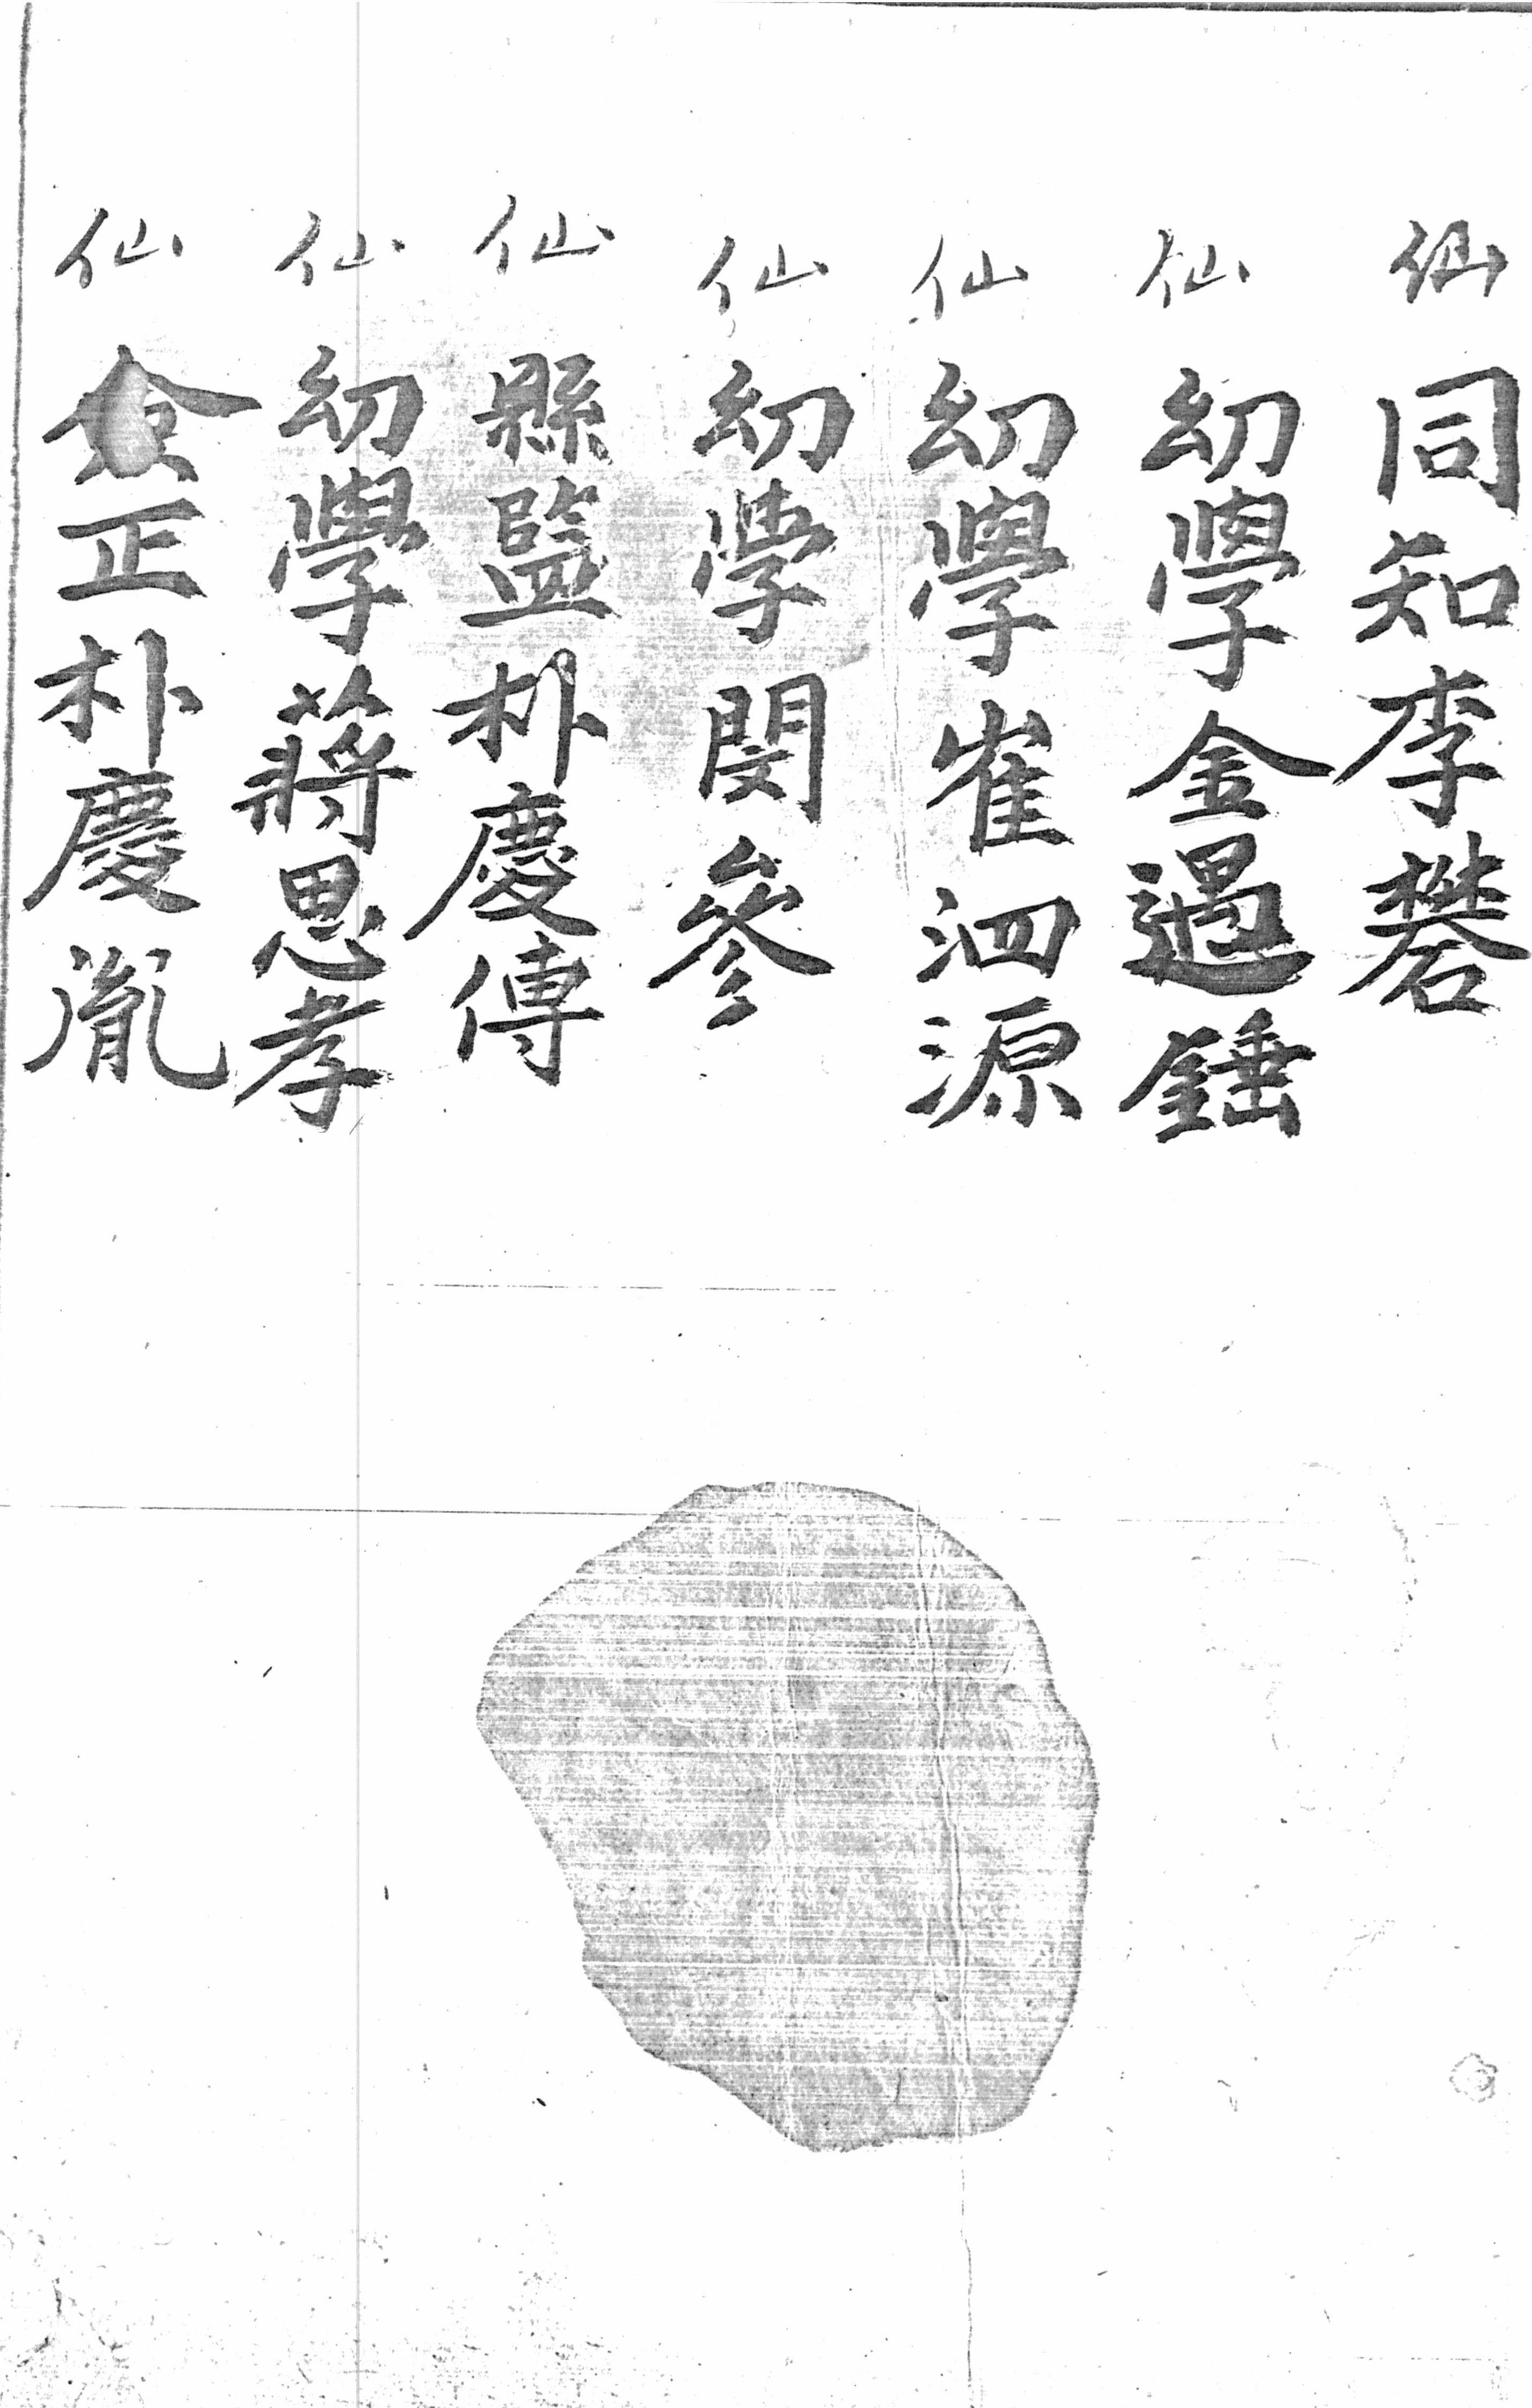 仙 同知李礬
仙 幼學金遇錘
仙 幼學崔泗源
仙 幼學閔參
仙 縣監朴慶傳
仙 幼學蔣思孝
仙 僉正朴慶胤